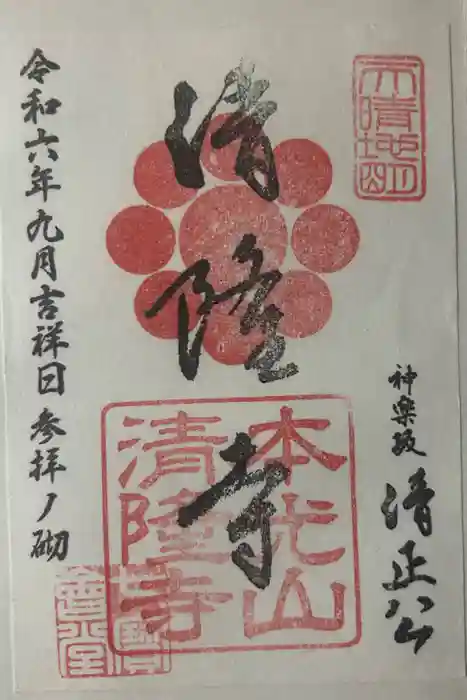 天晴地明
神楽坂 清正公
清隆寺
本光山
清隆寺
令和六年九月吉祥日参拝ノ砌